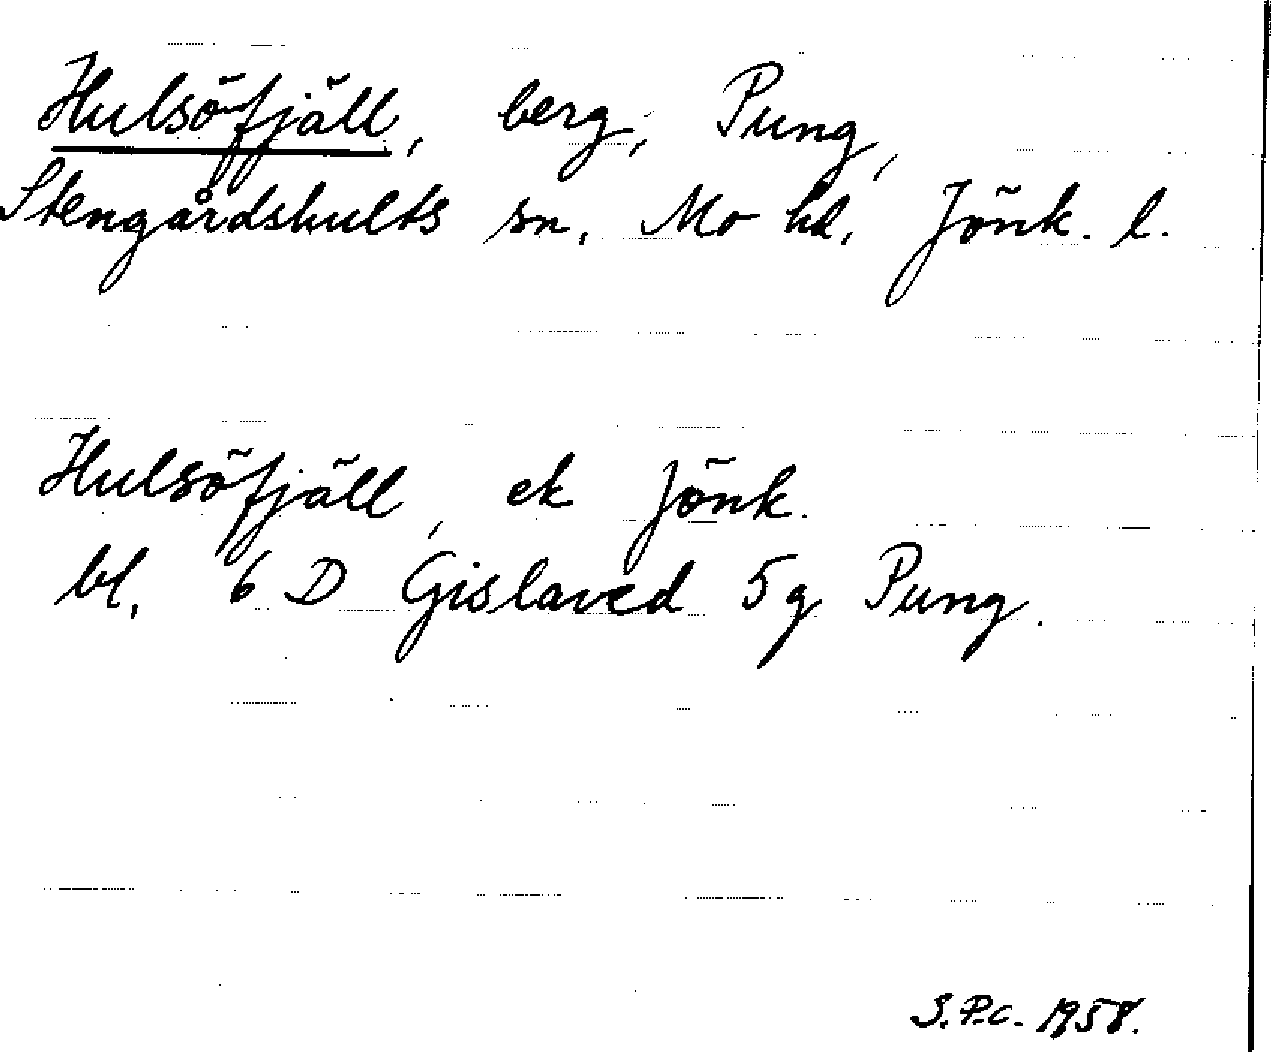 Hulsöfjäll, berg, Pung,
Stengårdshults sn, Mo hd, Jönk. l.
Hulsöfjäll, ek Jönk.
bl, 6 D Gislaved 5g Pung.
S.P.C. 1958.